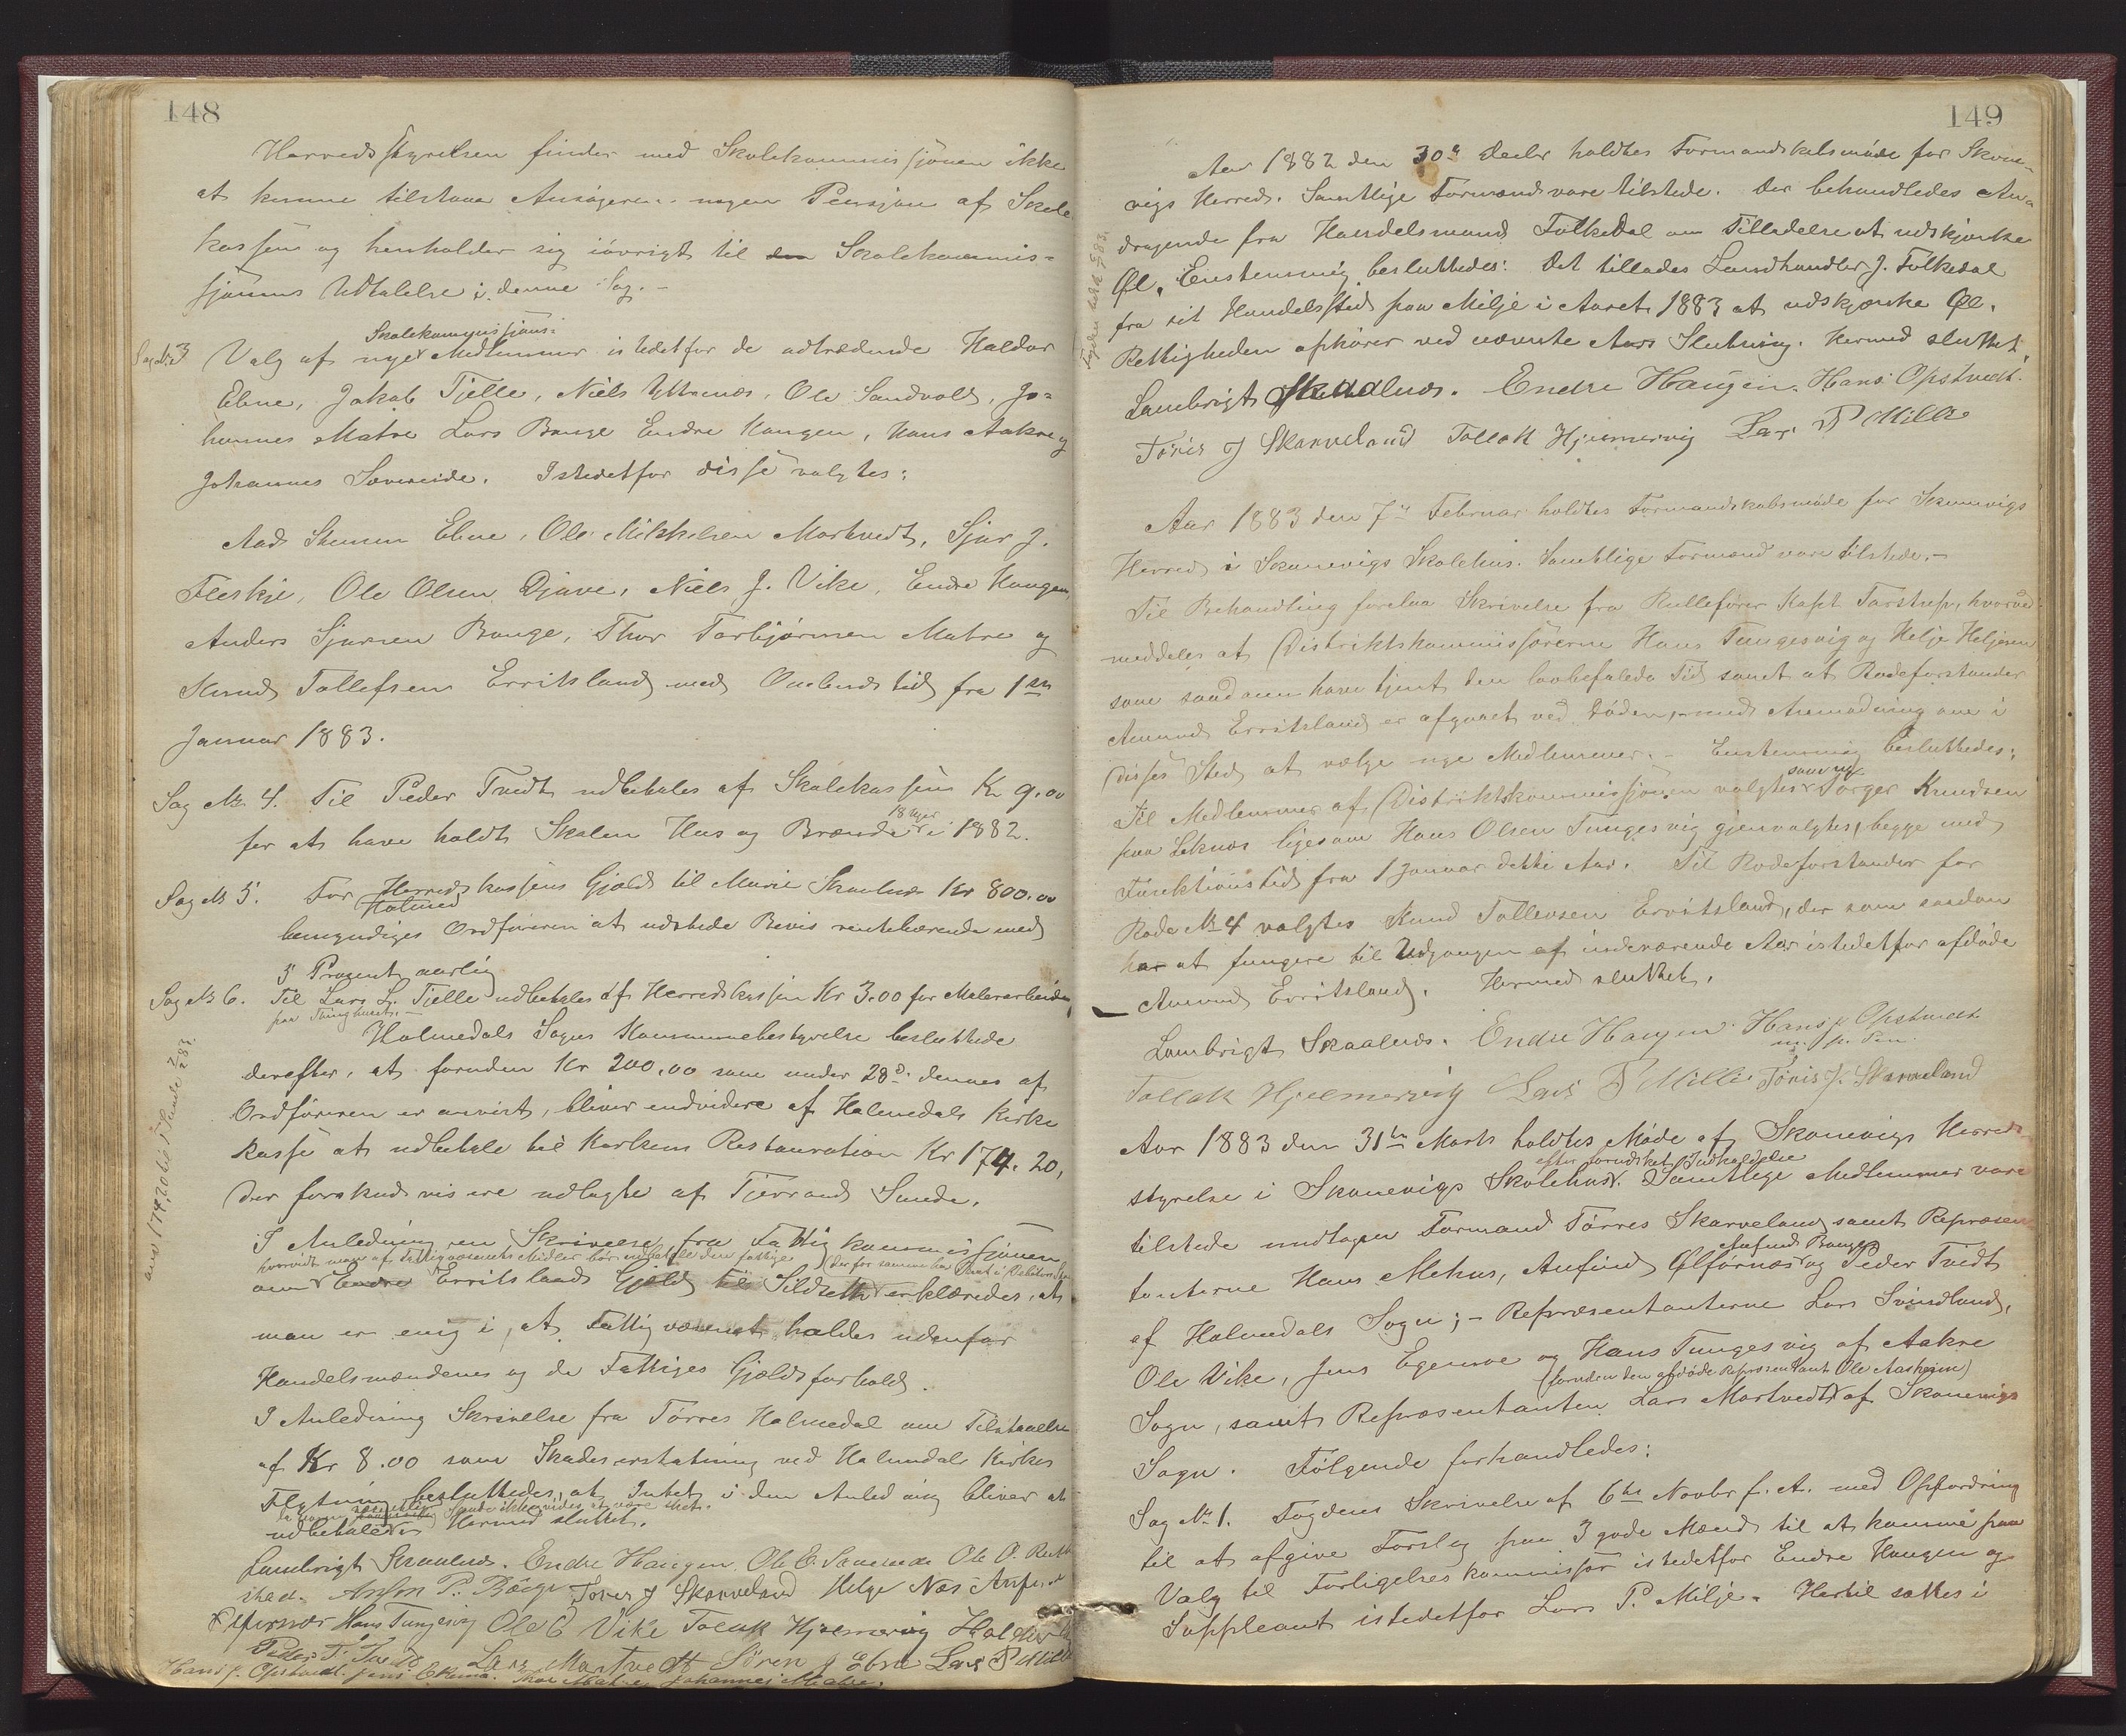 148
Herredsstyrelsen finder med Skolekommissjonen ikke
at kunne tilstaa Ansögeren nogen Pensjon af Skole
kassen og henholder sig iövrigt til den Skolekommis-
sjonens Udtalelse i denne Sag.-
Sag № 3 Valg af nye Skolekommissjons- Medlemmer istedetfor de udtrædende Haldor
Ebne, Jakob Tjelle, Niels Yttrenæs, Ole Sandvold, Jo-
hannes Matre Lars Bauge Endre Haugen, Hans Aakre og
Johannes Sævereide. Istedetfor disse valgtes:
Aad Ebne, Ole Mikkelsen Markvedt, Sjur J.
Fleskje, Ole Olsen Djuve, Niels J. Vike, Endre Haugen,
Anders Sjursen Bauge, Thor Torbjörnsen Matre og
Knud Tollefsen Erritsland med Ombudstid fra 1ste
Januar 1883.
Sag № 4. Til Peder Tvedt udbetales af Skolekassen Kr 9.00
for at have holdt Skolen Hus og Brænde 18 Uger i 1882.
Sag № 5. For Herredskassens Gjæld til Marie Skaalnæs Kr 800.00
bemyndiges Ordföreren at udstede Bevis rentebærende med
5 Prozent aarlig
Sag № 6. Til Lars L. Tjelle udbetales af Herredskassen Kr 3.00 for Malerarbeide
paa Thinghuset.-
Holmedals Sogns Kommunebestyrelse besluttede
derefter, at foruden Kr 200,00 som under 28de dennes af
Ordföreren er anvist, bliver endvidere af Holmedals Kirke
kasse at udbetale til Kirkens Restauration Kr 174.20,
der forskudsvis ere udlagte af Tjerrand Sunde.
anv 174,20 til T Sunde 2/2 83.
I Anledning en Skrivelse fra Fattigkommissjonen
hvorvidt man af Fattigvæsenets Midler bör udbetale den fattige
om Endre Erritslands Gjæld til Sildseth erklæredes, at
man er enig i, at Fattigvæsenet holdes udenfor
Handelsmændenes og de Fattiges Gjældsforhold.
I Anledning Skrivelse fra Törres Holmedal om Tilstaaelse
af Kr 8.00 som Skadeserstatning ved Holmedals Kirkes
Flytning besluttedes, at Intet i den Anledning bliver at
udbetale Hermed sluttet.
Lambrigt Skaalnæs. Endre Haugen Ole E. Sævereide Ole O.
Ansen P. Böge Töres J Skarveland Helge Næs Anfin
Ølfernæs Hans Tungesvig Ole O Vike Tollak Hjelmervig Haldor
Peder T. Tvedt Lars Martvedt Sören J Ebne Lars P Milje
Hans J. Opstvedt. Jens Thor Matre Johannes Matre.
149
Aar 1882 den 30te Decbr holdtes Formandskabsmöde for Skone-
vigs Herred. Samtlige Formænd vare tilstede. Der behandledes An-
dragende fra Handelsmand Folkedal om Tilladelse at udskjænke
Øl. Enstemmig besluttedes: Det tillades Landhandler J. Folkedal
fra sit Handelssted paa Milje i Aaret 1883 at udskjænke Øl.
Rettigheden ophörer ved nævnte Aars Slutning. Hermed sluttet.
Lambrigt Skaalnæs. Endre Haugen. Hans Opstvedt.
Töris J Skarveland Tollak Hjelmervig Lars P Milje
Aar 1883 den 7de Februar holdtes Formandskabsmöde for Skonevigs
Herred i Skonevigs Skolehus. Samtlige Formænd vare tilstede.-
Til Behandling forelaa Skrivelse fra Rulleförer Kapt Tarstrup, hvorved
meddeles at Distriktskommissörerne Hans Tungesvig og Helje Heljesen
som saadann have tjent den lovbefalede Tid samt at Rodeforstander
Amund Erritsland er afgaaet ved Döden, med Anmodning om i
Disses Sted at vælge nye Medlemmer.- Enstemmig besluttedes:
Til Medlemmer af Distriktskommissjonen valgtes som ny Torger Knudsen
paa Leknæs ligesom Hans Olsen Tungesvig gjenvalgtes, begge med
Funktionstid fra 1 Januar dette Aar. Til Rodeforstander for
Rode № 4 valgtes Knud Tollevsen Erritsland, der som saadan
har at fungere til Udgangen af indeværende Aar istedetfor afdöde
Amund Erritsland. Hermed sluttet.
Lambrigt Skaalnæs. Endre Haugen Hans J. Opstvedt
m. p. Pen
Tollak Hjelmervig Lars P Milje Töris J. Skarveland
Aar 1883 den 31te Marts holdtes Möde af Skonevigs Herreds-
styrelse i Skonevigs Skolehus efter forudsket Indkaldelse. Samtlige Medlemmer vare
tilstede undtagen Formand Törres Skarveland samt Repræsen-
tanterne Hans Mehus, Anfind Ølfernæs Anfind Bauge og Peder Tvedt
af Holmedals Sogn;- Repræsentanterne Lars Svindland,
Ole Vike, Jens Egenæs og Hans Tungesvig af Aakre
Sogn, samt Repræsentanten Lars Martvedt (foruden den afdöde Repræsentant Ole Aasheim) af Skonevigs
Sogn. Fölgende forhandledes:
Sag № 1. Fogdens Skrivelse af 6te Novbr f. A. med Opfordring
til at afgive Forslag paa 3 gode Mænd til at komme paa
Valg til Forligelseskommissær istedetfor Endre Haugen og
Suppleant istedetfor Lars P. Milje. Hertil sattes i